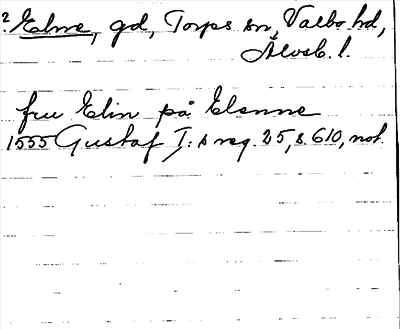 ? Elme, gd, Torps sn, Valbo hd,
Älvsb. l.
fru Elin på Elenne
1555 Gustaf I:s reg. 25, s. 610, not.